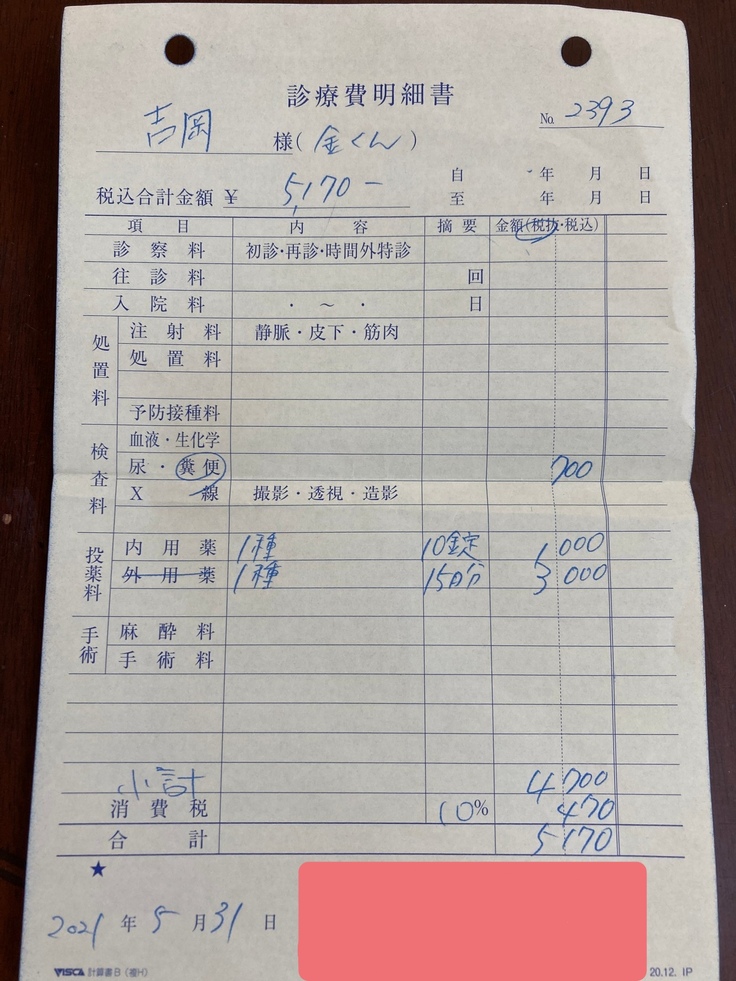 診療費明細書
№ 2393
吉岡 様(金くん)
自 年 月 日
税込合計金額 ¥ 5,170-
至 年 月 日
項目 内容 摘要 金額(税抜・税込)
診察料 初診・再診・時間外特診
往診料 回
入院料 ・ ~ ・ 日
処置料
注射料 静脈・皮下・筋肉
処置料
予防接種料
検査料
血液・生化学
尿・糞便 700
X線 撮影・透視・造影
投薬料
内用薬 1種 10錠 1,000
外用薬 1種 15日分 3,000
手術
麻酔料
手術料
小計 4,700
消費税 10% 470
合計 5,170
★
2021年5月31日
VISCA 計算書B(複H)
20.12. IP